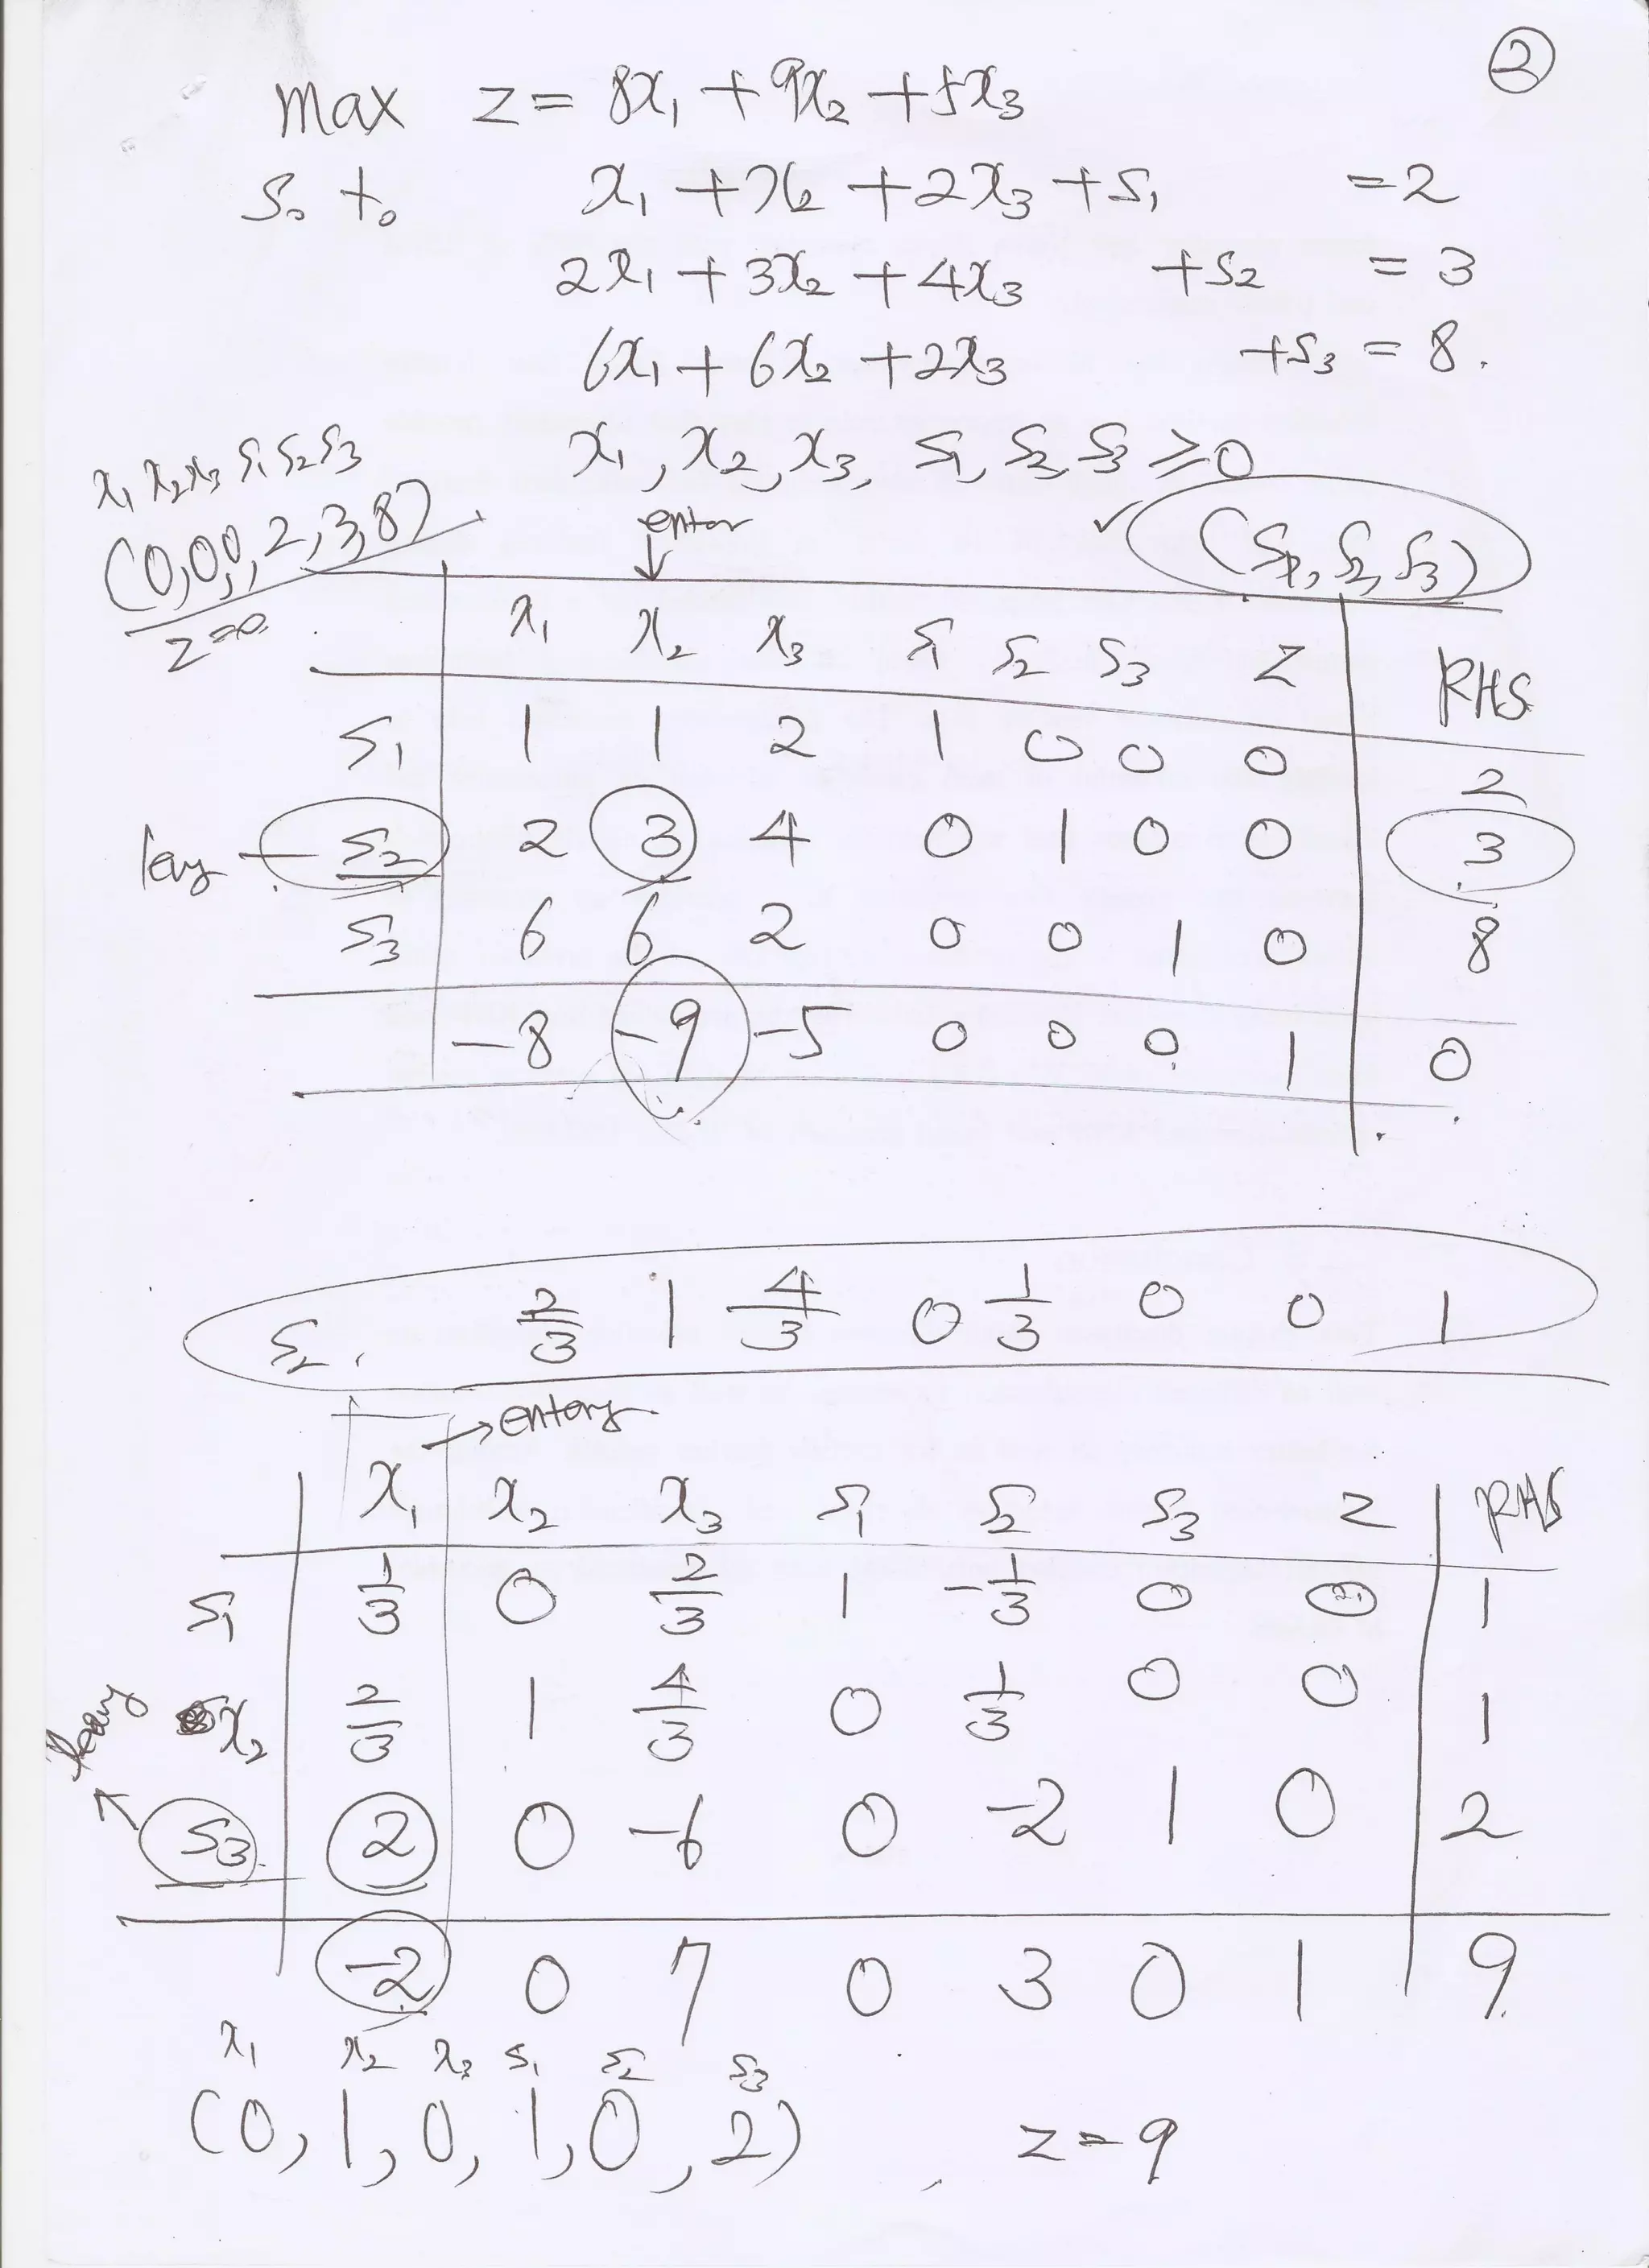 ②
max z = 8x₁ + 9x₂ + 5x₃
s. t. x₁ + x₂ + 2x₃ + s₁ = 2
2x₁ + 3x₂ + 4x₃ + s₂ = 3
6x₁ + 6x₂ + 2x₃ + s₃ = 8.
x₁, x₂, x₃, s₁, s₂, s₃ ≥ 0
x₁ x₂ x₃ s₁ s₂ s₃
(0,0,0,2,3,8)
z=0.
enter
✓ (s₁, s₂, s₃)
x₁ x₂ x₃ s₁ s₂ s₃ z RHS
s₁ 1 1 2 1 0 0 0 2
s₂ 2 3 4 0 1 0 0 3
s₃ 6 6 2 0 0 1 0 8
-8 -9 -5 0 0 0 1 0
s₂. 2/3 1 4/3 0 1/3 0 0 1
x₁ x₂ x₃ s₁ s₂ s₃ z RHS
s₁ 1/3 0 2/3 1 -1/3 0 0 1
x₂ 2/3 1 4/3 0 1/3 0 0 1
s₃ 2 0 -6 0 -2 1 0 2
-2 0 7 0 3 0 1 9
x₁ x₂ x₃ s₁ s₂ s₃
(0, 1, 0, 1, 0, 2) z = 9